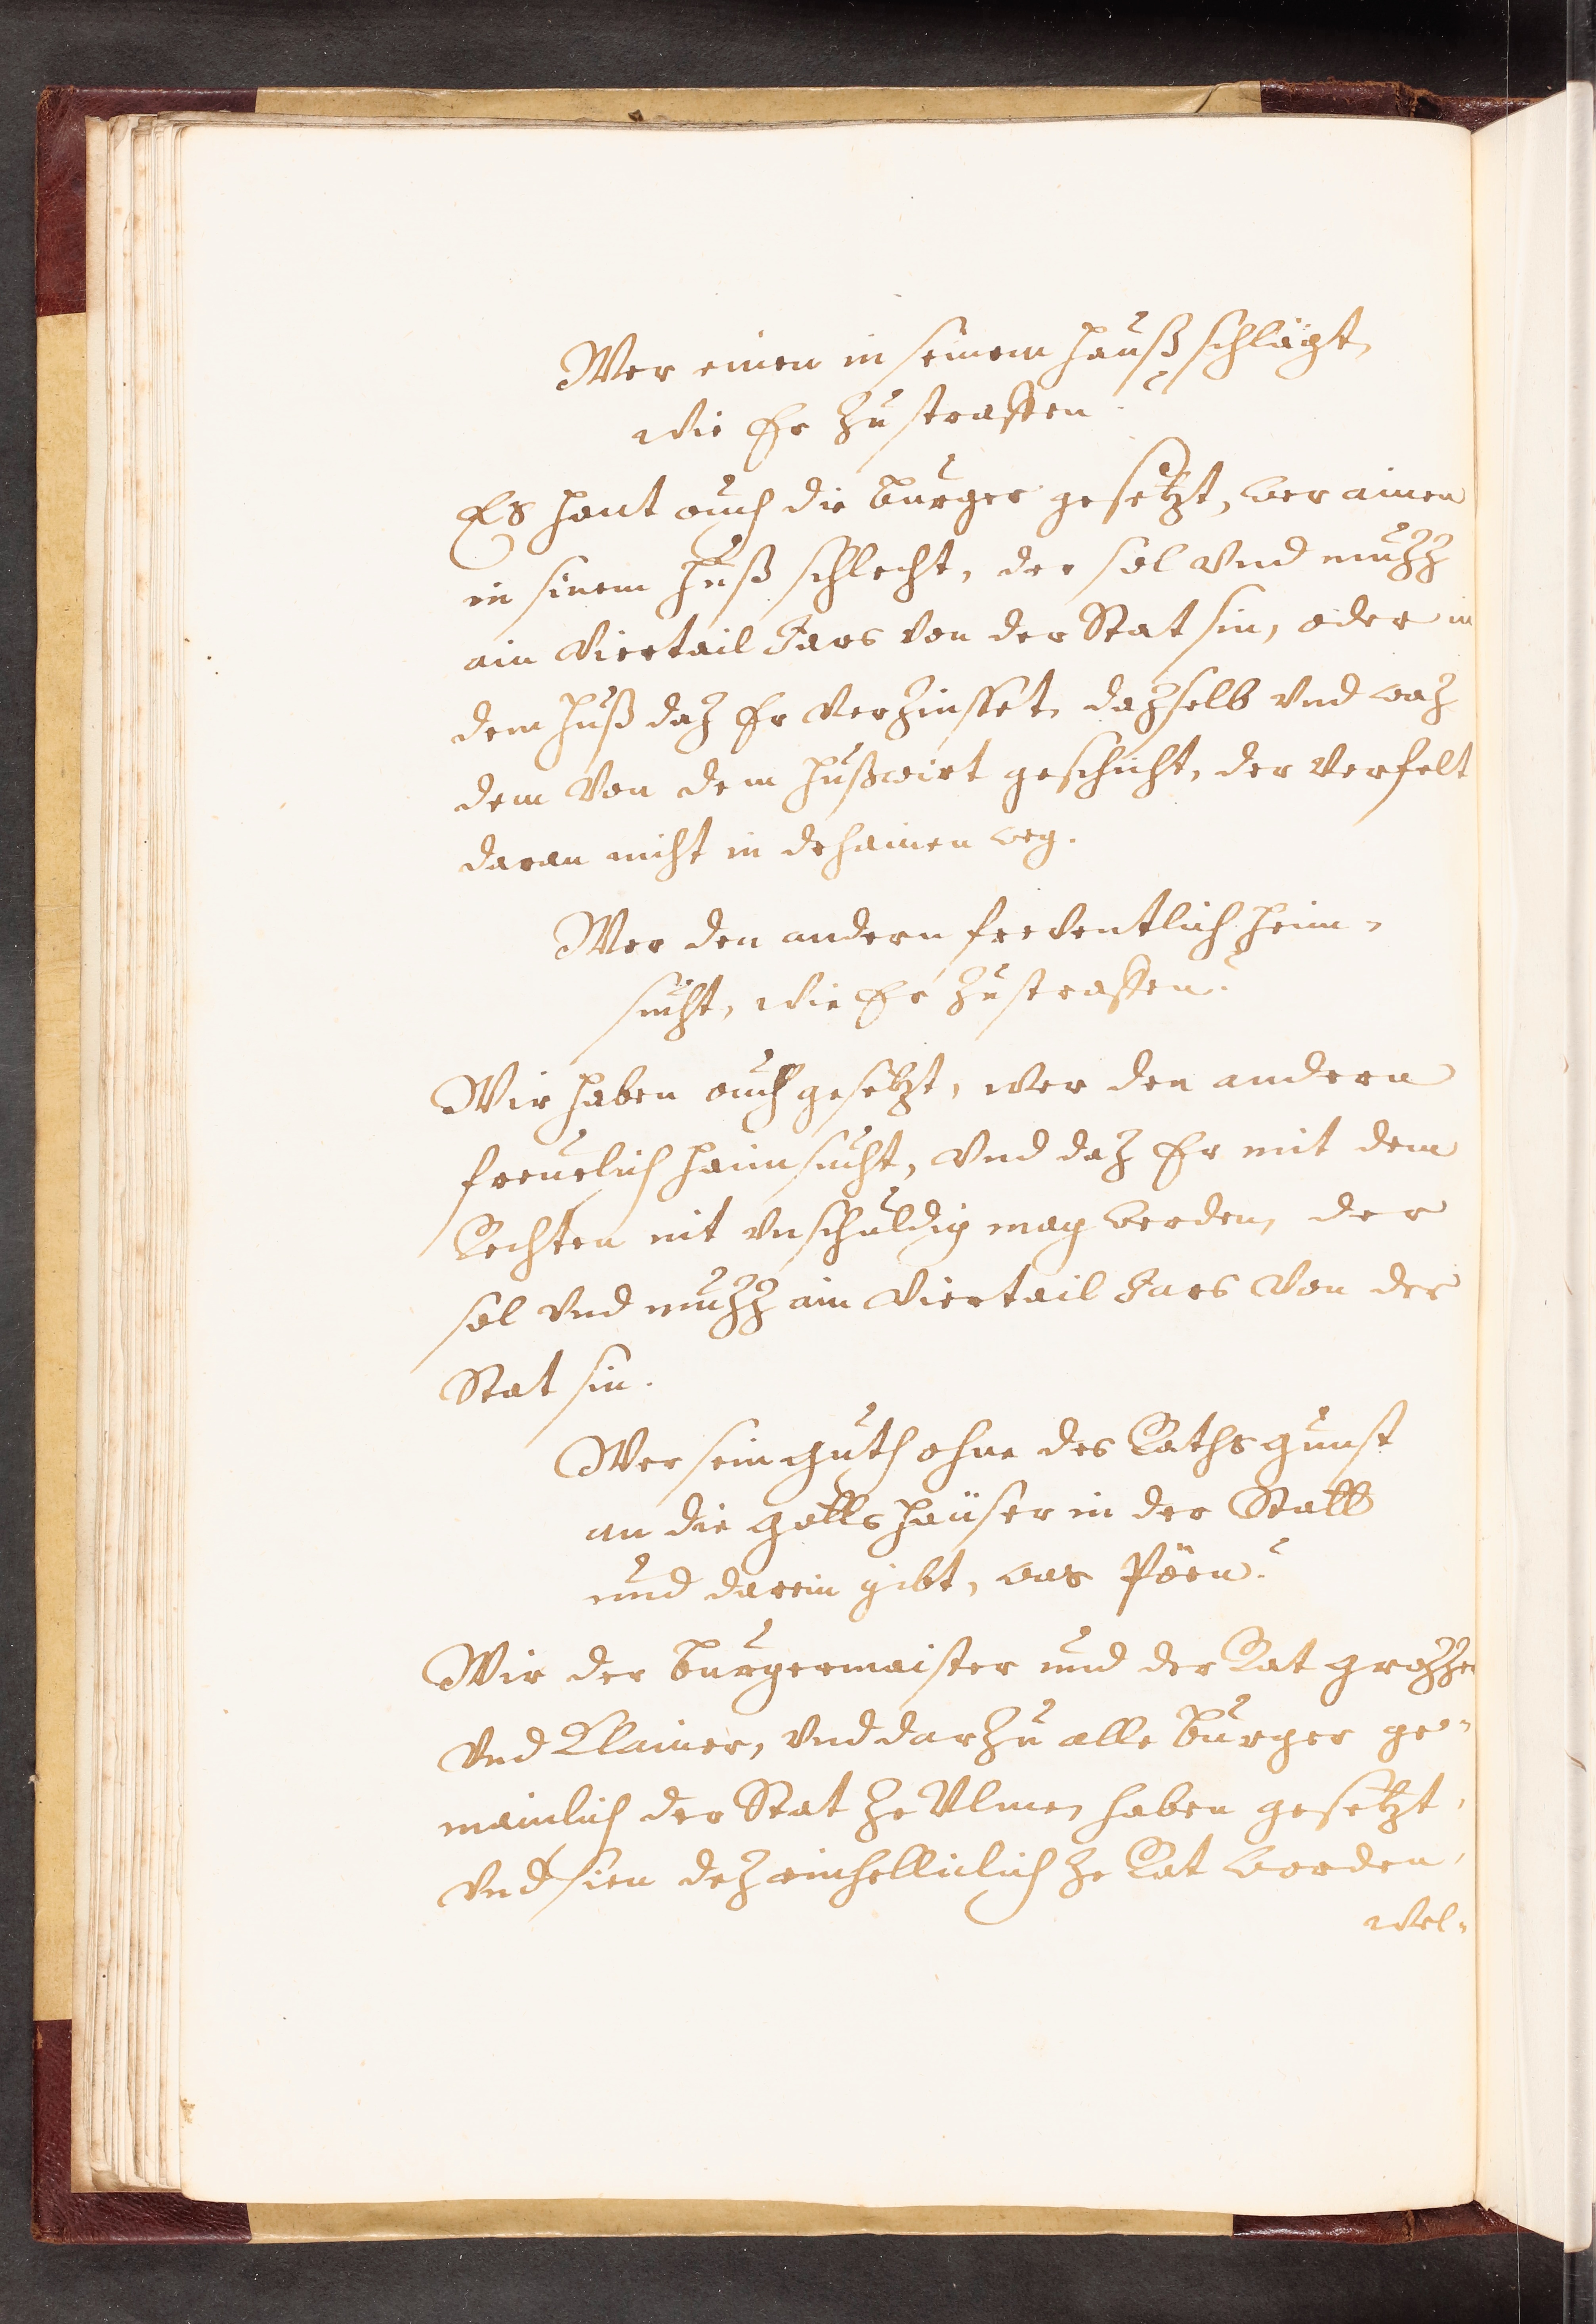 Wer einen in seinem Hauß schlägt,
wie Er zu straffen?
Es hant auch die Burger gesetzt, wer ainen
in sinem Huß schlecht, der sol vnd muzz
ain Viertail Jars von der Stat sin, oder in
dem Huß daz Er verzinsset, dazselb vnd waz
dem von dem Hußwirt geschicht, der verfelt
daran nicht in dehainen weg.
Wer den andern freventlich heim-
sucht, wie Er zu straffen?
Wir haben auch gesetzt, wer den andern
freuelich haimsucht, vnd daz Er mit dem
Rechten nit vnschuldig mag werden, der
sol vnd muzz ain Viertail Jars von der
Stat sin.
Wer sein Guth ohne des Raths gunst
an die Gottshäuser in der Statt
und darein gibt, was Pöen?
Wir der Burgermaister und der Rat grozzer
vnd Klainer, vnd darzu alle Burger ge-
mainlich der Stat ze Vlmen haben gesetzt,
vnd sien dez einhelliclich ze Rat worden,
wel-